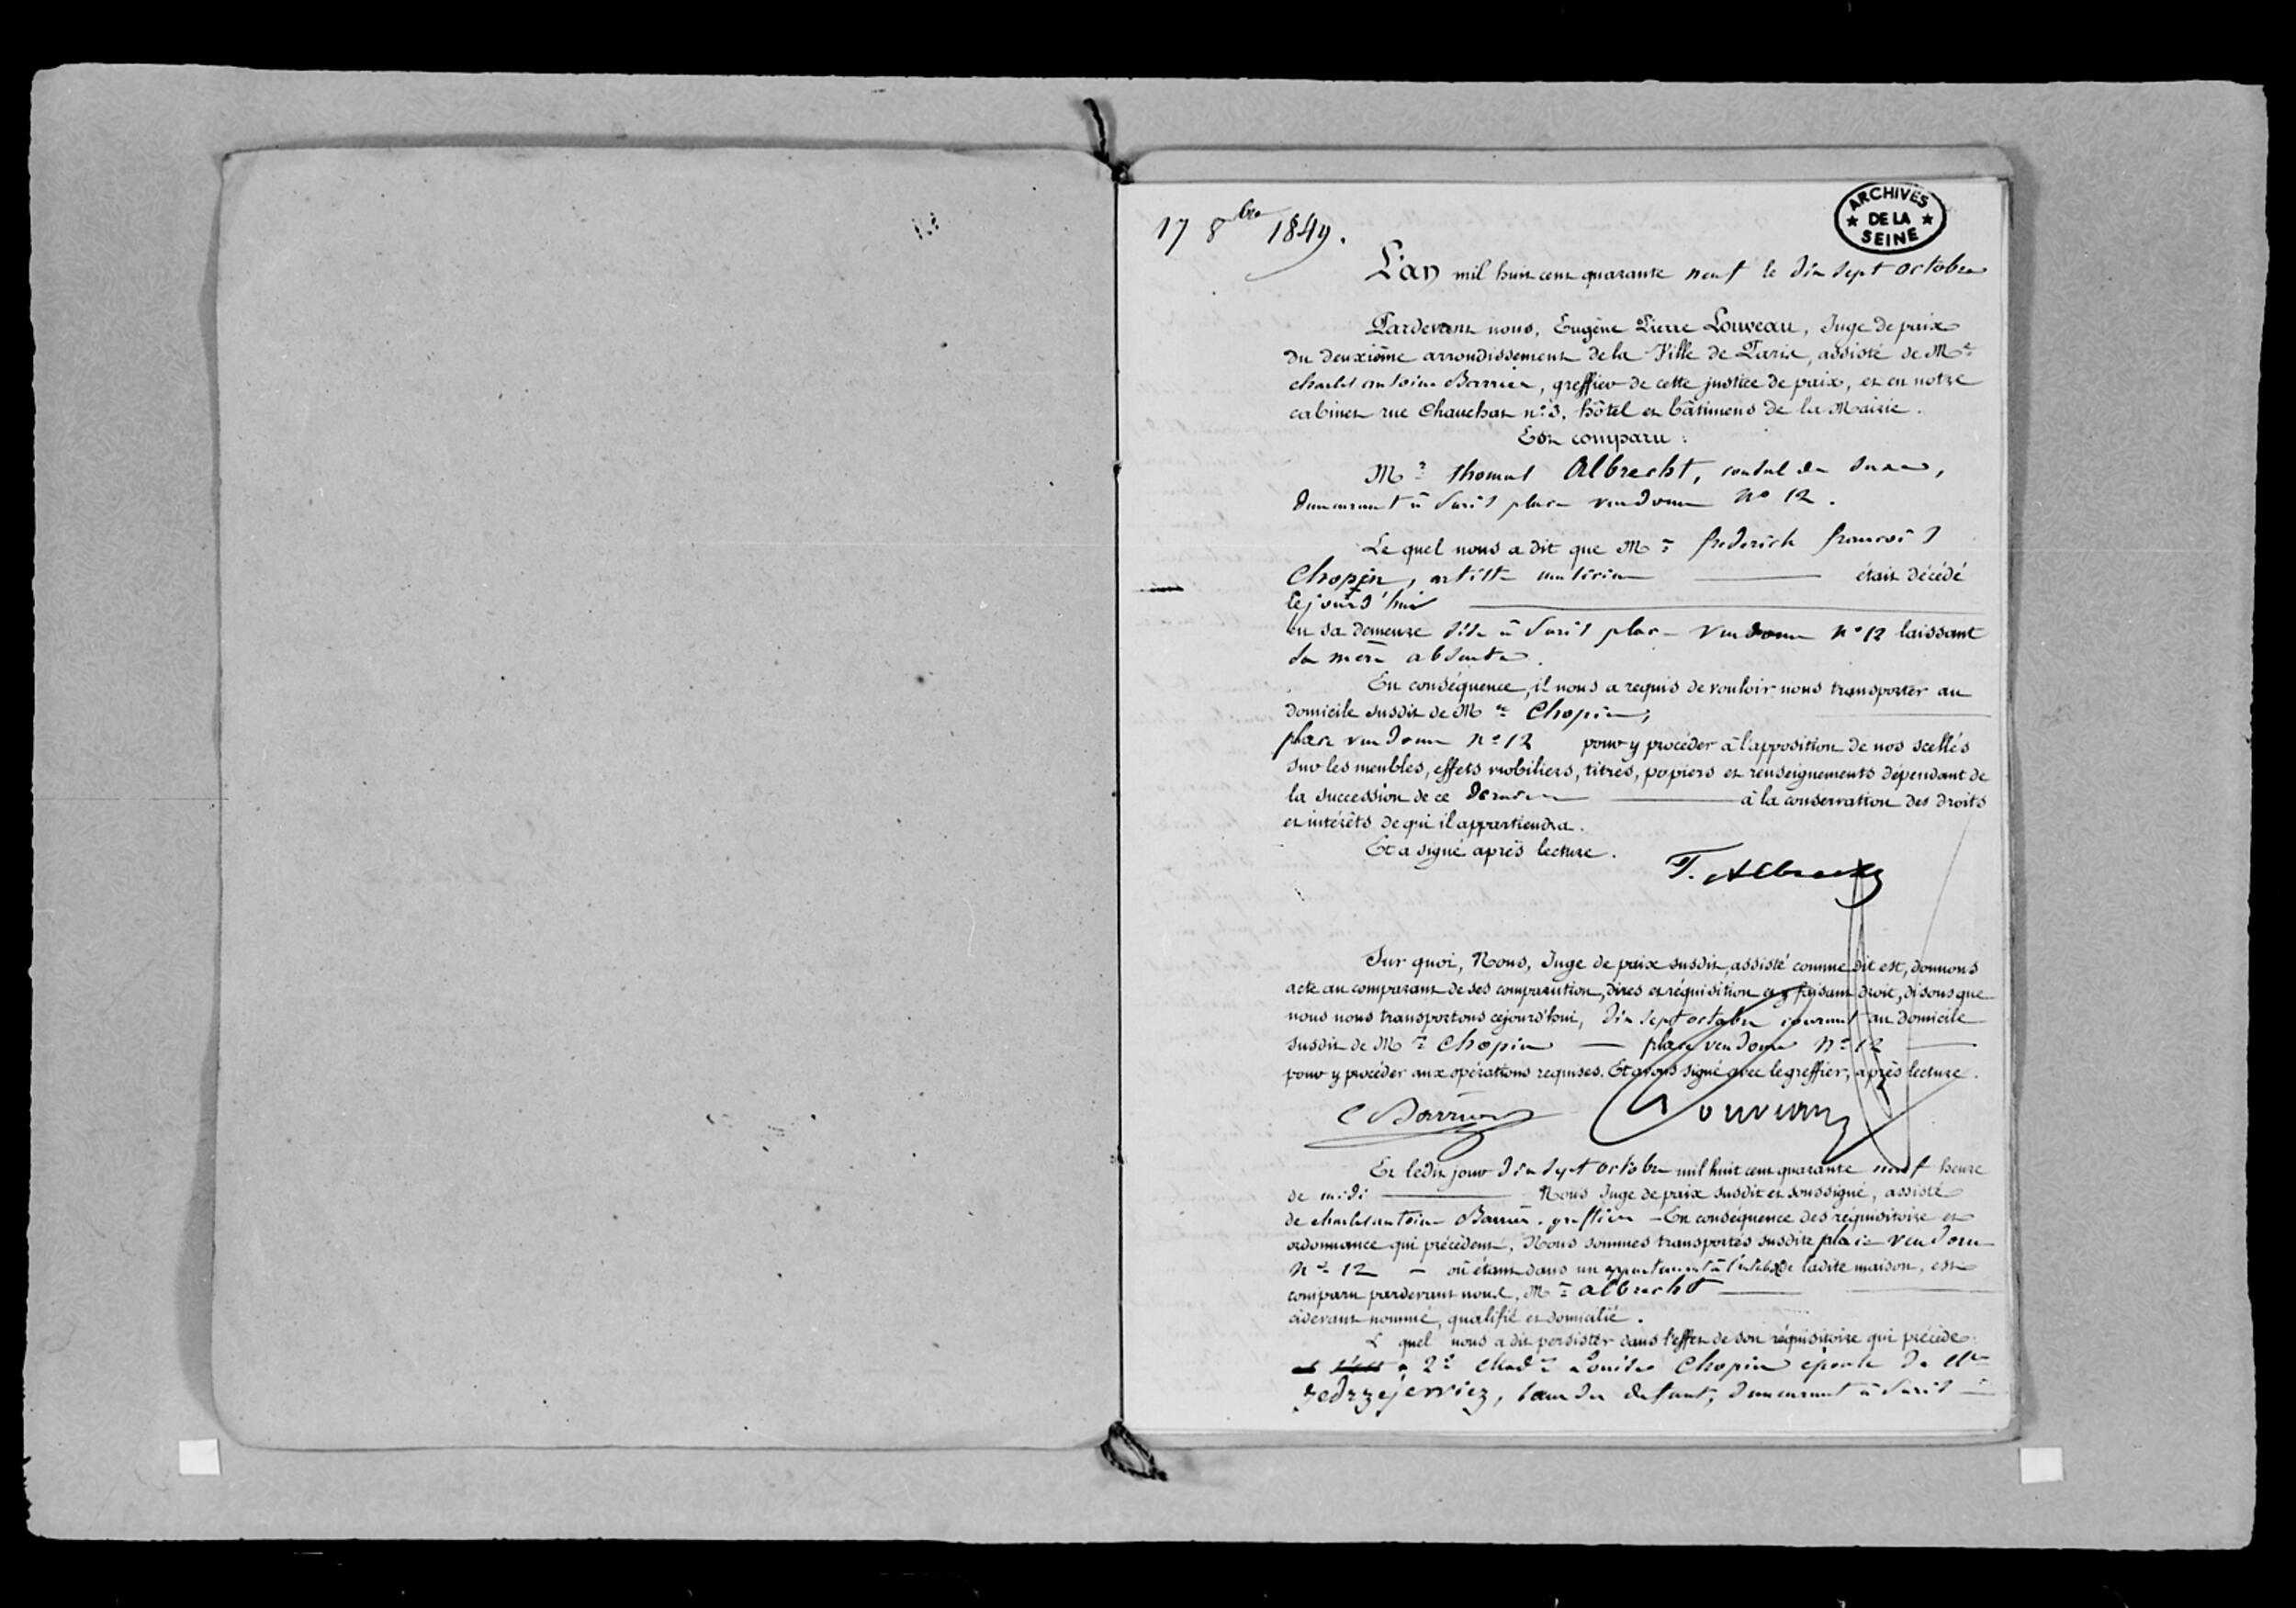 ARCHIVES
DE LA
SEINE
17 8bre 1849.
L'an mil huit cent quarante neuf le dix sept octobre
Pardevant nous, Eugène Pierre Louveau, Juge de paix
du deuxième arrondissement de la Ville de Paris, assisté de Me
charles antoine Barrier, greffier de cette justice de paix, et en notre
cabinet rue Chauchat no 3, hôtel et bâtimens de la Mairie.
Est comparu :
Mr thomas Albrecht, consul de Saxe,
demeurant à Paris place vendome no 12.
Le quel nous a dit que Mr frederick francois
Chopin, artiste musicien était décédé
cejourd'hui
en sa demeure sise à Paris place Vendome no 12 laissant
sa mère absente.
En conséquence, il nous a requis de vouloir nous transporter au
domicile susdit de Mr Chopin,
place vendome no 12 pour y procéder à l'apposition de nos scellés
sur les meubles, effets mobiliers, titres, papiers et renseignements dépendant de
la succession de ce dernier à la conservation des droits
et intérêts de qui il appartiendra.
Et a signé après lecture.
T. Albrecht
Sur quoi, Nous, Juge de paix susdit, assisté comme dit est, donnons
acte au comparant de ses comparution, dires et réquisition et y faisant droit, disons que
nous nous transportons cejourd'hui, dix sept octobre courant au domicile
susdit de Mr Chopin place vendome no 12
pour y procéder aux opérations requises. Et avons signé avec le greffier, après lecture.
C Barrier Louveau
Et ledit jour dix sept octobre mil huit cent quarante neuf heure
de midi Nous Juge de paix susdit et soussigné, assisté
de charles antoine Barrier, greffier - En conséquence des réquisitoire et
ordonnance qui précèdent, Nous sommes transportés susdite place vendome
no 12 - où étant dans un appartement à l'entresol de ladite maison, est
comparu pardevant nous, Mr albrecht
cidevant nommé, qualifié et domicilié.
Le quel nous a dit persister dans l'effet de son réquisitoire qui précède.
2o Made Louise Chopin épouse de Mr
Jedrzejewicz, sœur du defunt, demeurant à Paris